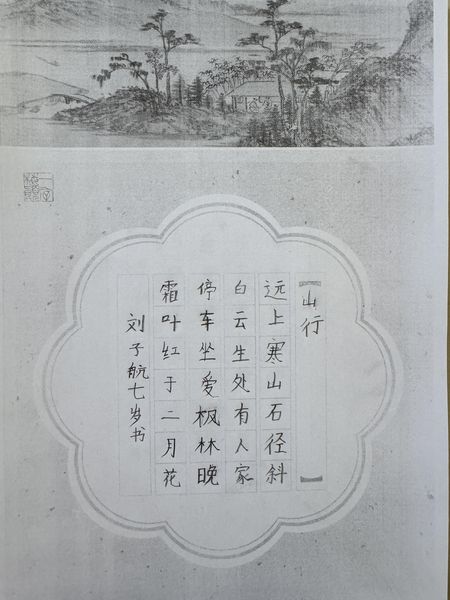 山行
远上寒山石径斜
白云生处有人家
停车坐爱枫林晚
霜叶红于二月花
刘子航七岁书